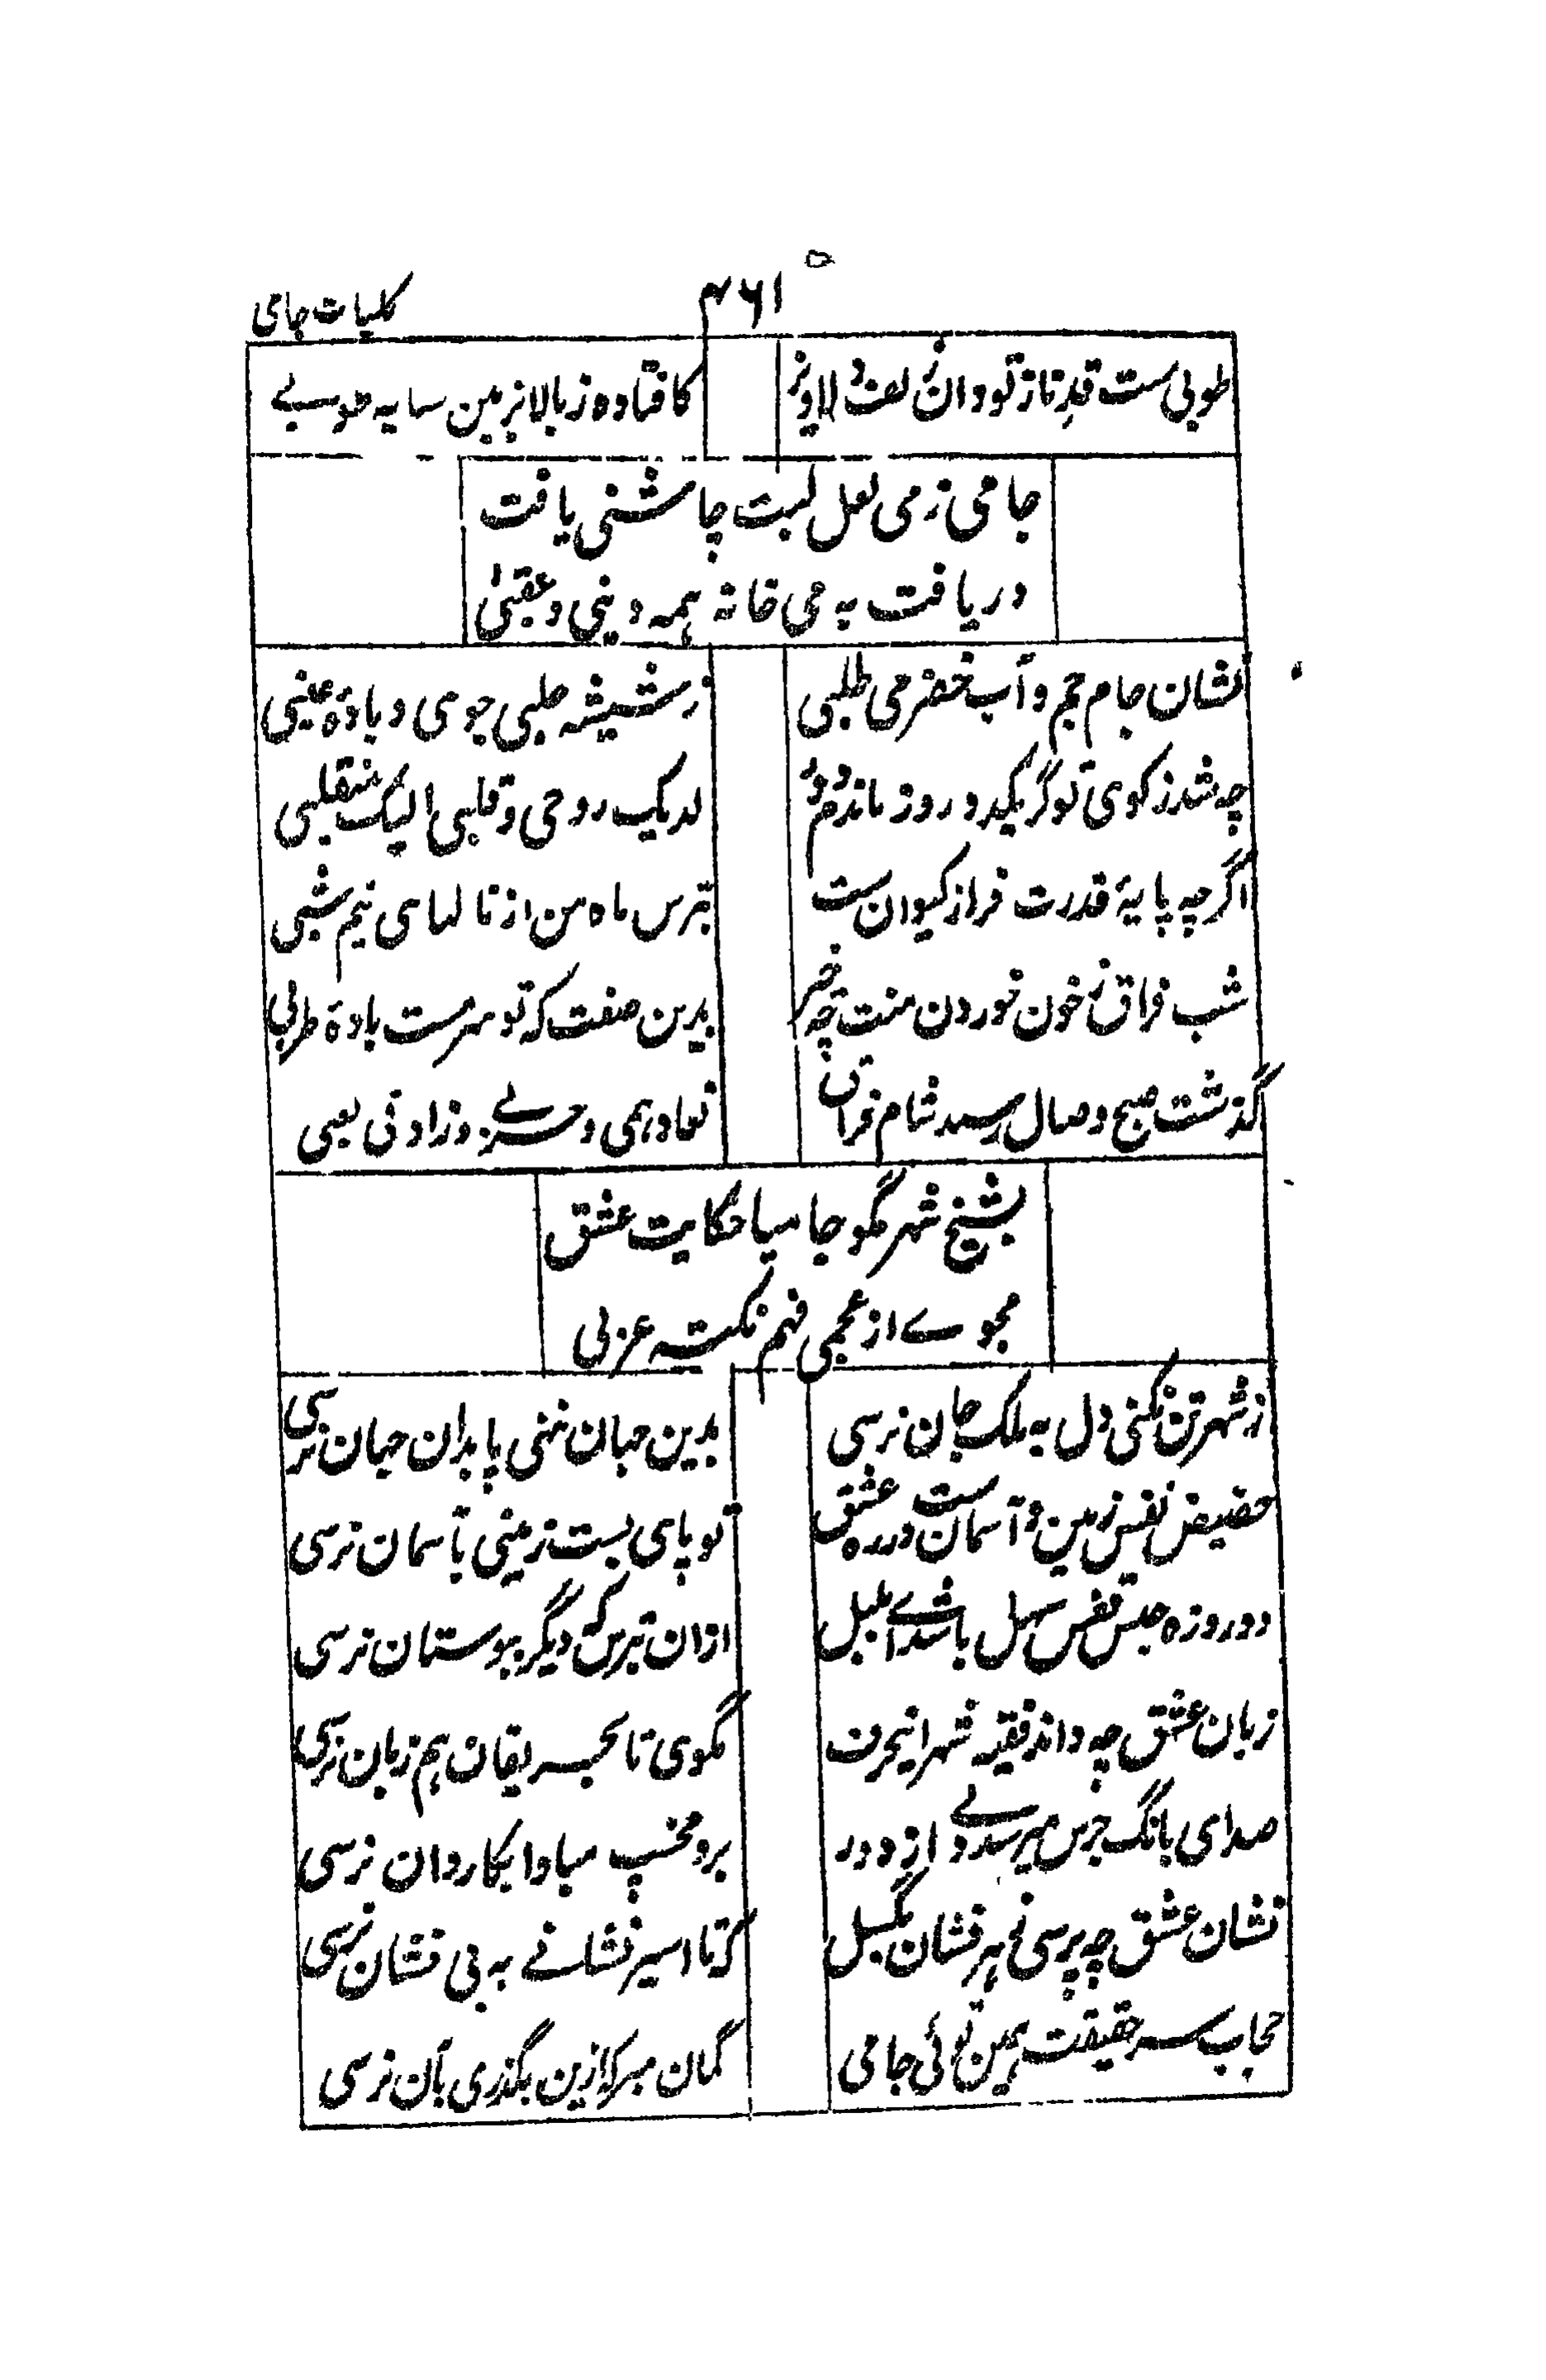 کلیات جامی
۴۶۱
طوبی ست قد ناز تو وان زلف دلاویز
کافتاده ز بالا بزمین سایه طوبے
جامی ز می لعل لبت چاشنی یافت
دریافت به می خانه همه دینی و عقبیٰ
نشان جام جم و آب خضر می طلبی
ز شیشه حلبی جوی و بادهٔ عنبی
چه شد ز کوی تو گر یکدو روز ماندم دور
لدیک روحی و قلبی الیک منقلبی
اگرچه پایهٔ قدرت فراز کیوان ست
بترس ماه من از نالهای نیم شبی
شب فراق ز خون خوردن منت چه خبر
بدین صفت که تو سرمست بادهٔ طربی
گذشت صبح وصال و رسید شام فراق
فعاد همی و حزنے و زاد فی تعبی
بشیخ شهر مگو جامیا حکایت عشق
مجوے از عجمی فهم نکته عربی
ز شهر تن نکنی دل به ملک جان نرسی
بدین جهان ننهی پا بدان جهان نرسی
حضیض نفس زمین و آسمان ست در ره عشق
تو پای بست زمینی بآسمان نرسی
دو روزه حبس قفس سهل باشد اے بلبل
ازان بترس که دیگر ببوستان نرسی
زبان عشق چه داند فقیه شهر اینحرف
مگوی تا بحریفان هم زبان نرسی
صدای بانگ جرس میرسد ولے از دور
برو مخسپ مبادا بکاروان نرسی
نشان عشق چه پرسی ز هر نشان بگسل
که تا اسیر نشانے به بی نشان نرسی
حجاب سر حقیقت همین توئی جامی
گمان مبر که ازین بگذری بآن نرسی